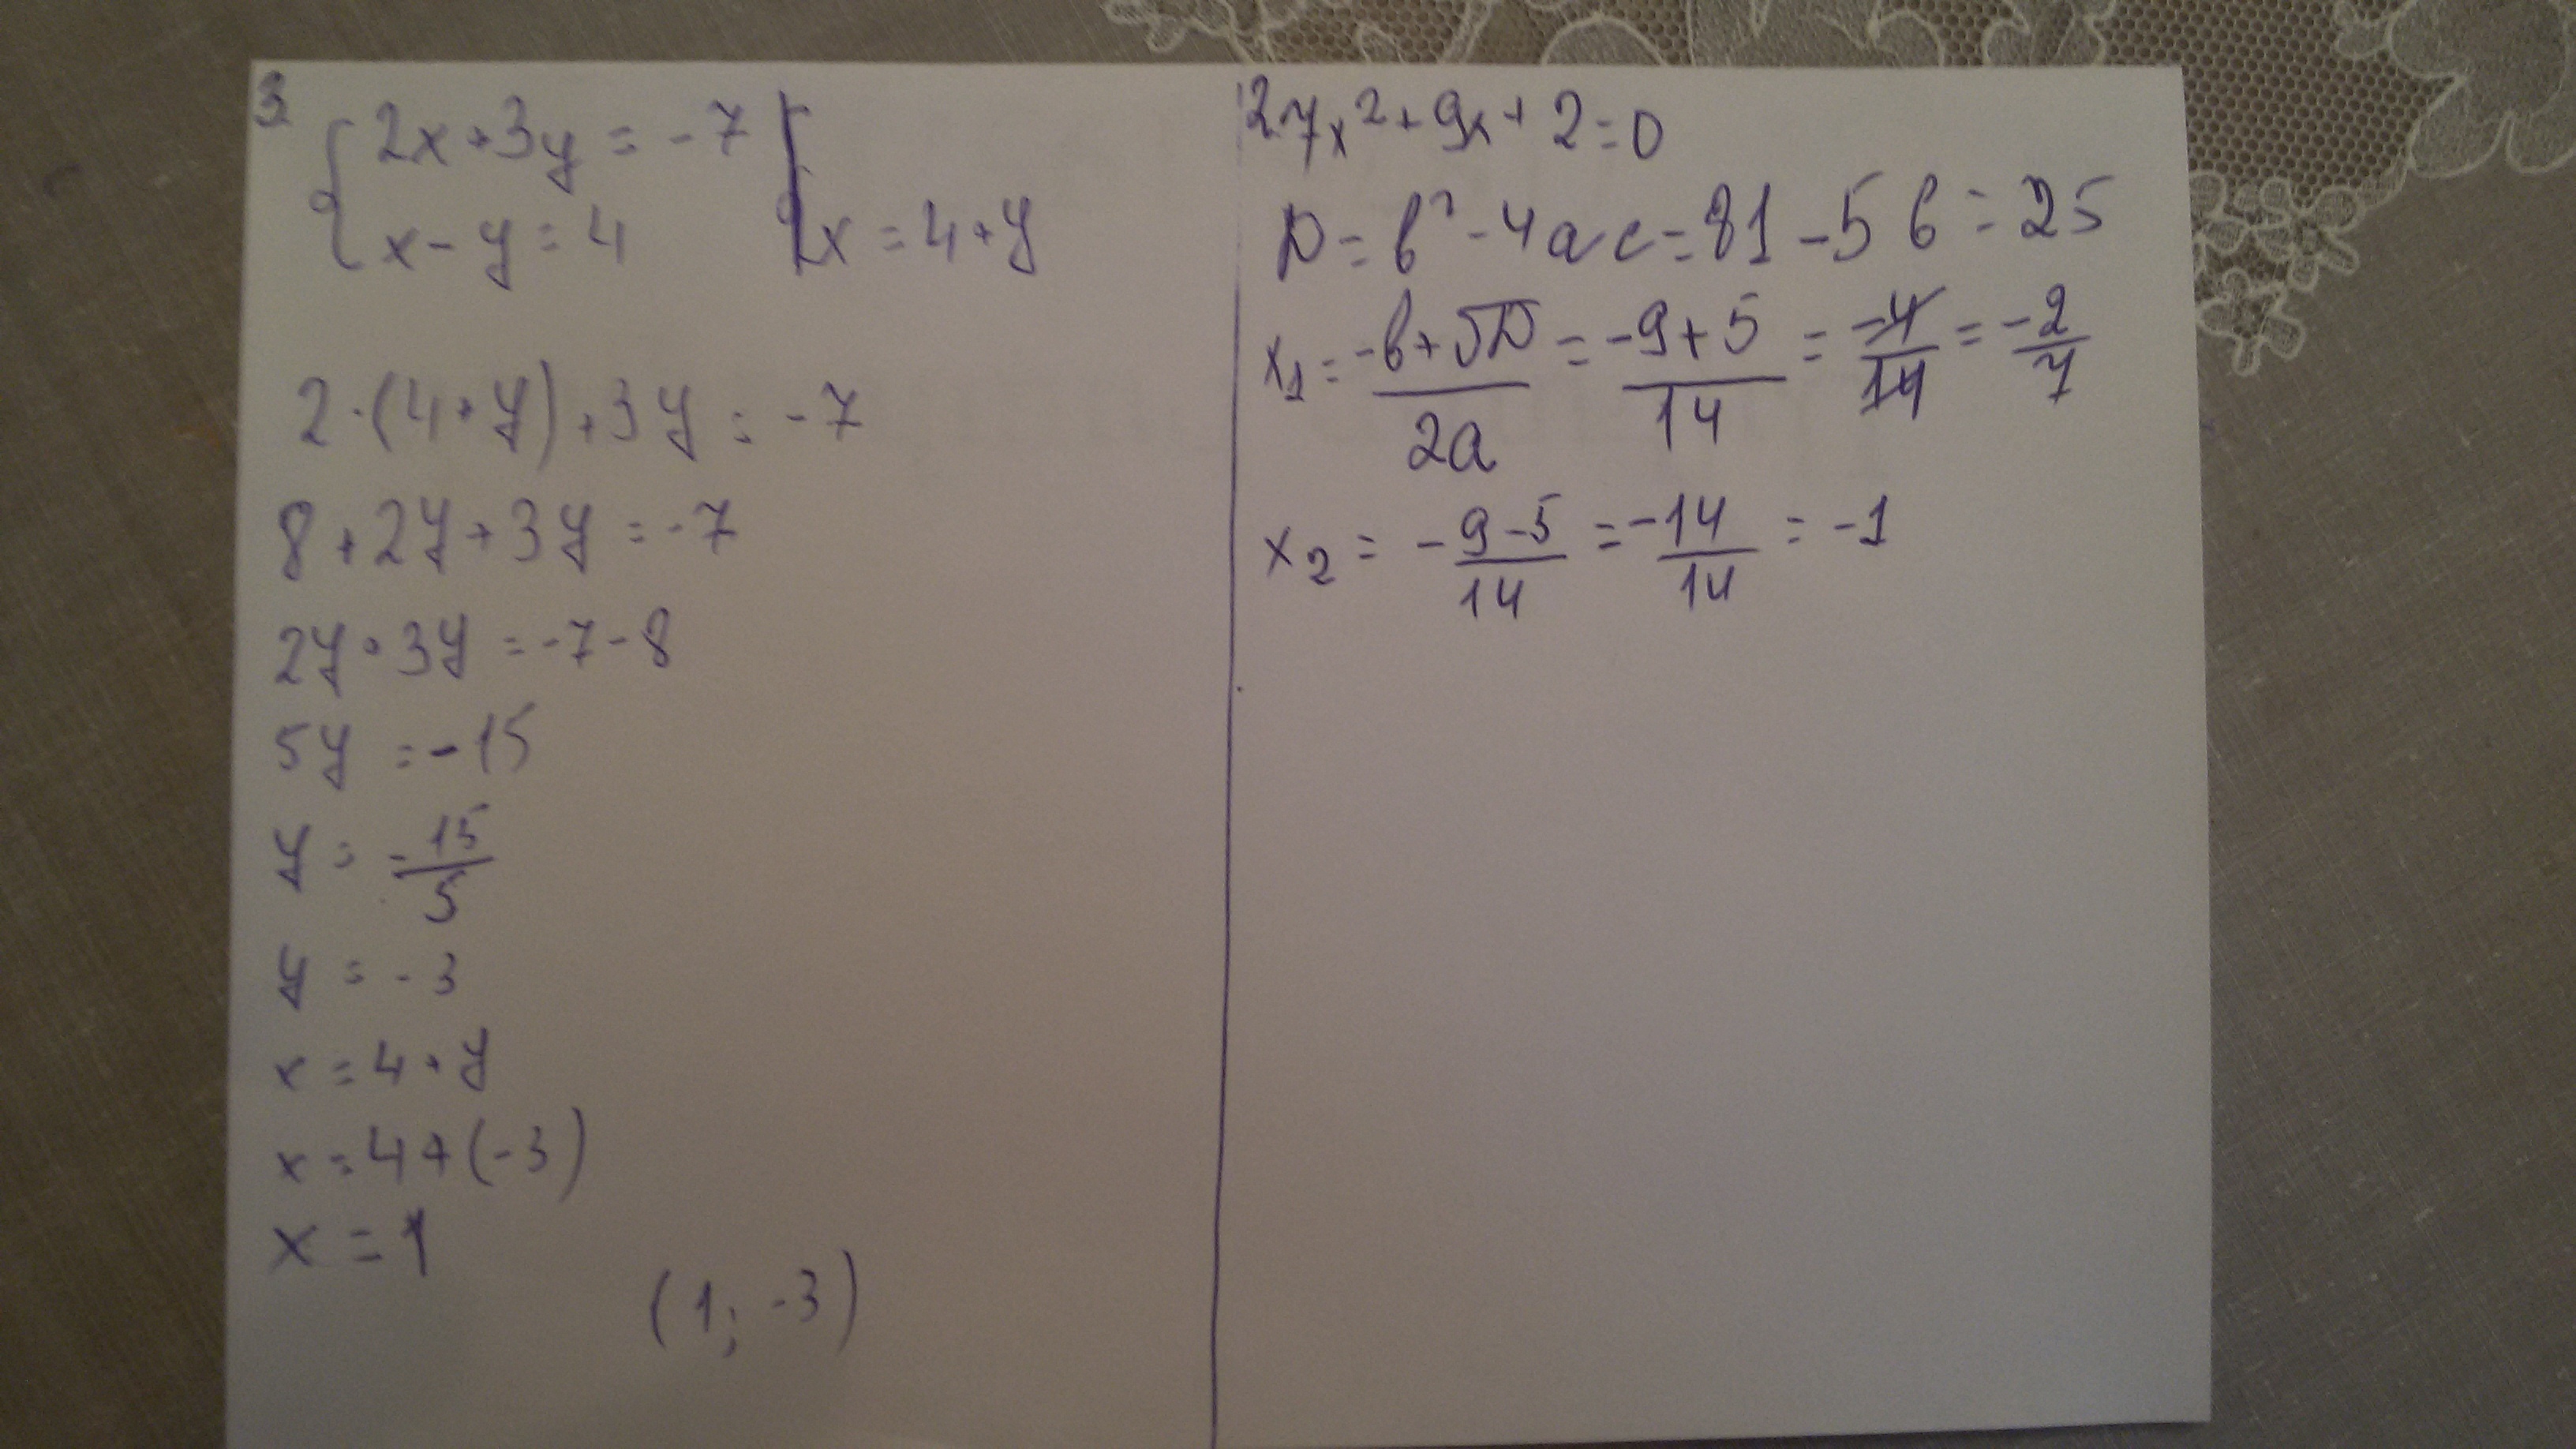 3.
2x+3y=-7
x-y=4 x=4+y
2·(4+y)+3y=-7
8+2y+3y=-7
2y+3y=-7-8
5y=-15
y=-15/5
y=-3
x=4+y
x=4+(-3)
x=1
(1;-3)
2 7x²+9x+2=0
D=b²-4ac=81-56=25
x₁=-b+√D/2a=-9+5/14=-4/14=-2/7
x₂=-9-5/14=-14/14=-1